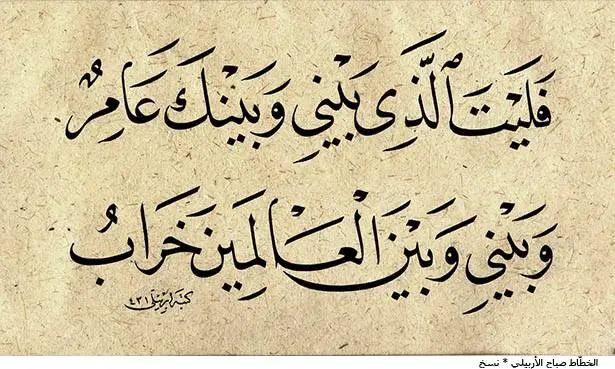 فَلَيْتَ ٱلَّذِي بَيْنِي وَبَيْنَكَ عَامِرٌ
وَبَيْنِي وَبَيْنَ الْعَالَمِينَ خَرَابُ
كتبه اربيلي ٤٣١
الخطّاط صباح الأربيلي * نسخ